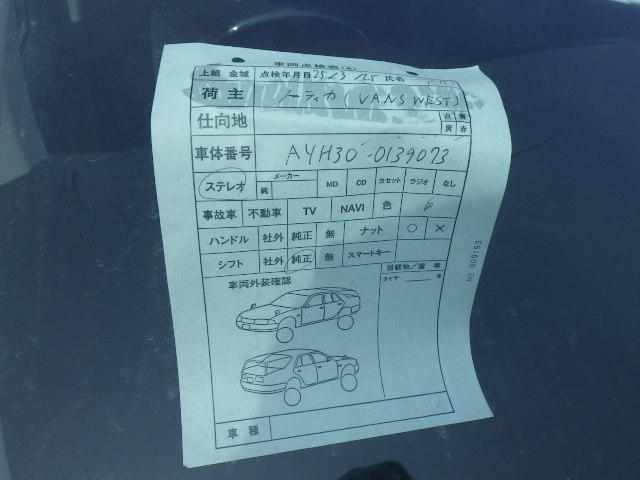 車両点検表
上組 金城 点検年月日 25/3/25 氏名
荷主 ノーティカ (VANS WEST)
仕向地 白 青
黄 赤
車体番号 AYH30-0139073
ステレオ メーカー 純 MD CD カセット ラジオ なし
事故車 不動車 TV NAVI 色
ハンドル 社外 純正 無 ナット ○ ×
シフト 社外 純正 無 スマートキー
搭載物/備考
タイヤ 本
車両外装確認
車種
№ 009193